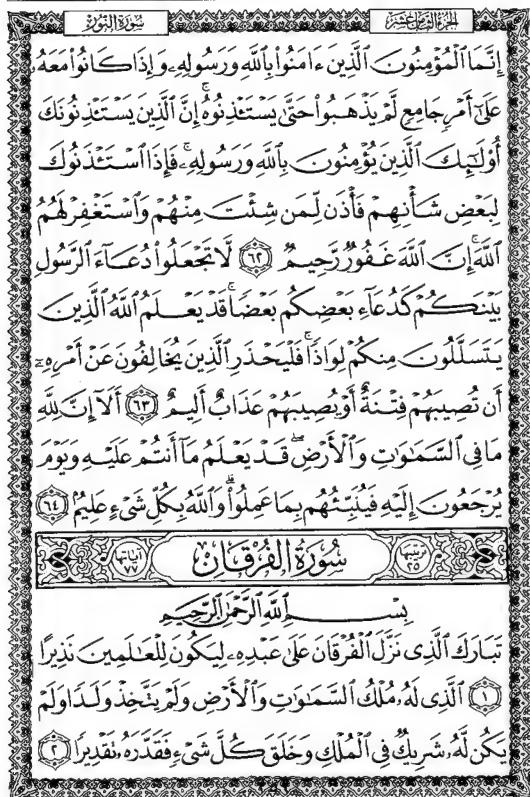 الجزء الثامن عشر
سورة النور
إِنَّمَا ٱلْمُؤْمِنُونَ ٱلَّذِينَ ءَامَنُوا۟ بِٱللَّهِ وَرَسُولِهِۦ وَإِذَا كَانُوا۟ مَعَهُۥ
عَلَىٰٓ أَمْرٍ جَامِعٍ لَّمْ يَذْهَبُوا۟ حَتَّىٰ يَسْتَـْٔذِنُوهُ ۚ إِنَّ ٱلَّذِينَ يَسْتَـْٔذِنُونَكَ
أُو۟لَـٰٓئِكَ ٱلَّذِينَ يُؤْمِنُونَ بِٱللَّهِ وَرَسُولِهِۦ ۚ فَإِذَا ٱسْتَـْٔذَنُوكَ
لِبَعْضِ شَأْنِهِمْ فَأْذَن لِّمَن شِئْتَ مِنْهُمْ وَٱسْتَغْفِرْ لَهُمُ
ٱللَّهَ ۚ إِنَّ ٱللَّهَ غَفُورٌ رَّحِيمٌ ٦٢ لَّا تَجْعَلُوا۟ دُعَآءَ ٱلرَّسُولِ
بَيْنَكُمْ كَدُعَآءِ بَعْضِكُم بَعْضًا ۚ قَدْ يَعْلَمُ ٱللَّهُ ٱلَّذِينَ
يَتَسَلَّلُونَ مِنكُمْ لِوَاذًا ۚ فَلْيَحْذَرِ ٱلَّذِينَ يُخَالِفُونَ عَنْ أَمْرِهِۦٓ
أَن تُصِيبَهُمْ فِتْنَةٌ أَوْ يُصِيبَهُمْ عَذَابٌ أَلِيمٌ ٦٣ أَلَآ إِنَّ لِلَّهِ
مَا فِى ٱلسَّمَـٰوَٰتِ وَٱلْأَرْضِ ۖ قَدْ يَعْلَمُ مَآ أَنتُمْ عَلَيْهِ وَيَوْمَ
يُرْجَعُونَ إِلَيْهِ فَيُنَبِّئُهُم بِمَا عَمِلُوا۟ ۗ وَٱللَّهُ بِكُلِّ شَىْءٍ عَلِيمٌ ٦٤
ترتيبها ٢٥ سُورَةُ الفُرْقَانِ آياتها ٧٧
بِسْمِ ٱللَّهِ ٱلرَّحْمَـٰنِ ٱلرَّحِيمِ
تَبَارَكَ ٱلَّذِى نَزَّلَ ٱلْفُرْقَانَ عَلَىٰ عَبْدِهِۦ لِيَكُونَ لِلْعَـٰلَمِينَ نَذِيرًا
١ ٱلَّذِى لَهُۥ مُلْكُ ٱلسَّمَـٰوَٰتِ وَٱلْأَرْضِ وَلَمْ يَتَّخِذْ وَلَدًا وَلَمْ
يَكُن لَّهُۥ شَرِيكٌ فِى ٱلْمُلْكِ وَخَلَقَ كُلَّ شَىْءٍ فَقَدَّرَهُۥ تَقْدِيرًا ٢